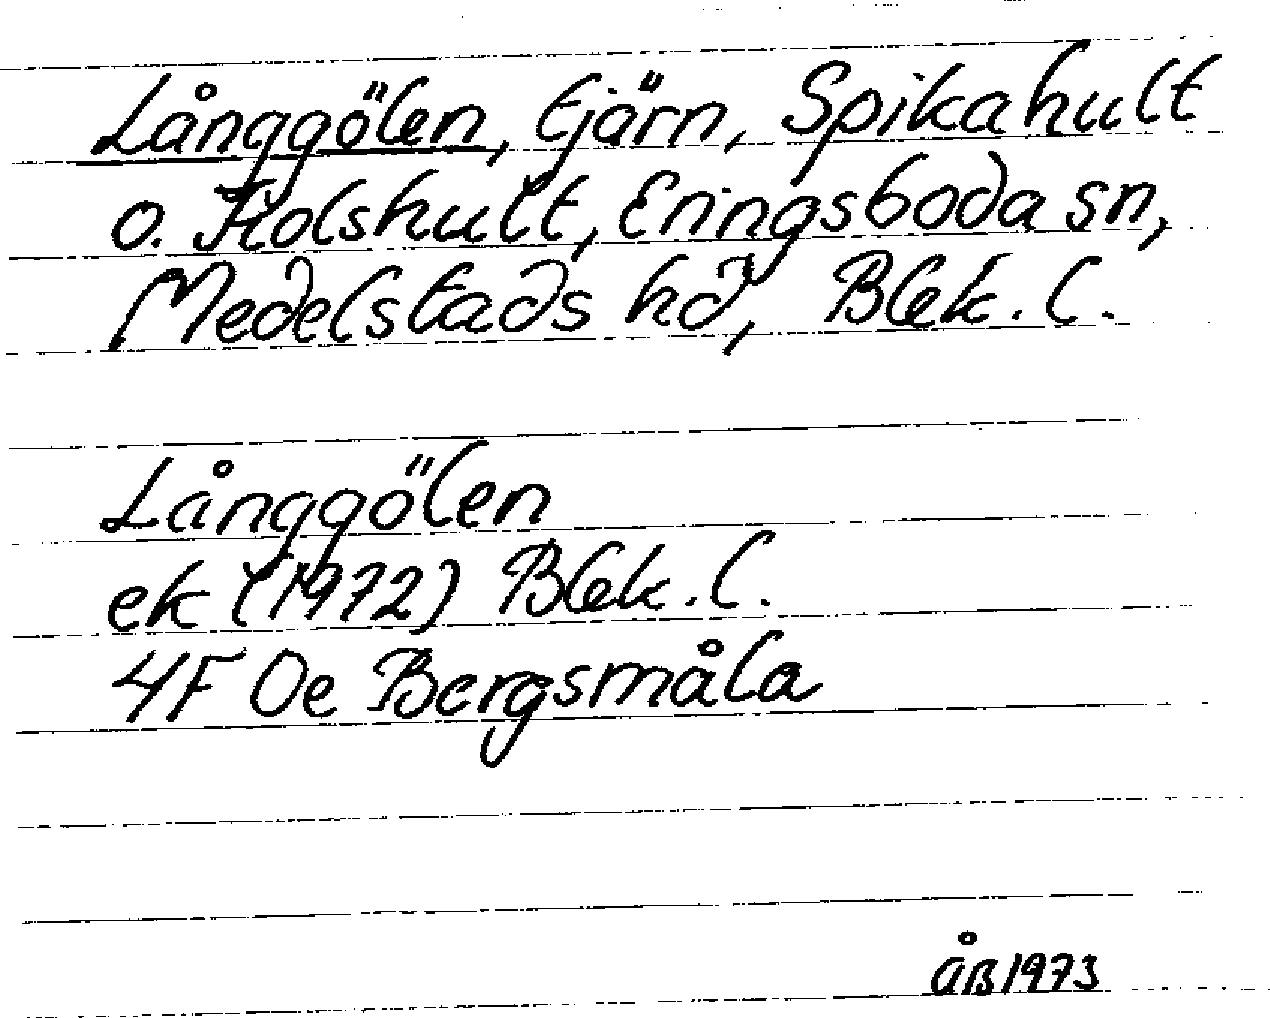 Långgölen, tjärn, Spikahult
o. Kolshult, Eringsboda sn,
Medelstads hd, Blek. l.
Långgölen
ek (1972) Blek. l.
4F 0e Bergsmåla
ÅB 1973